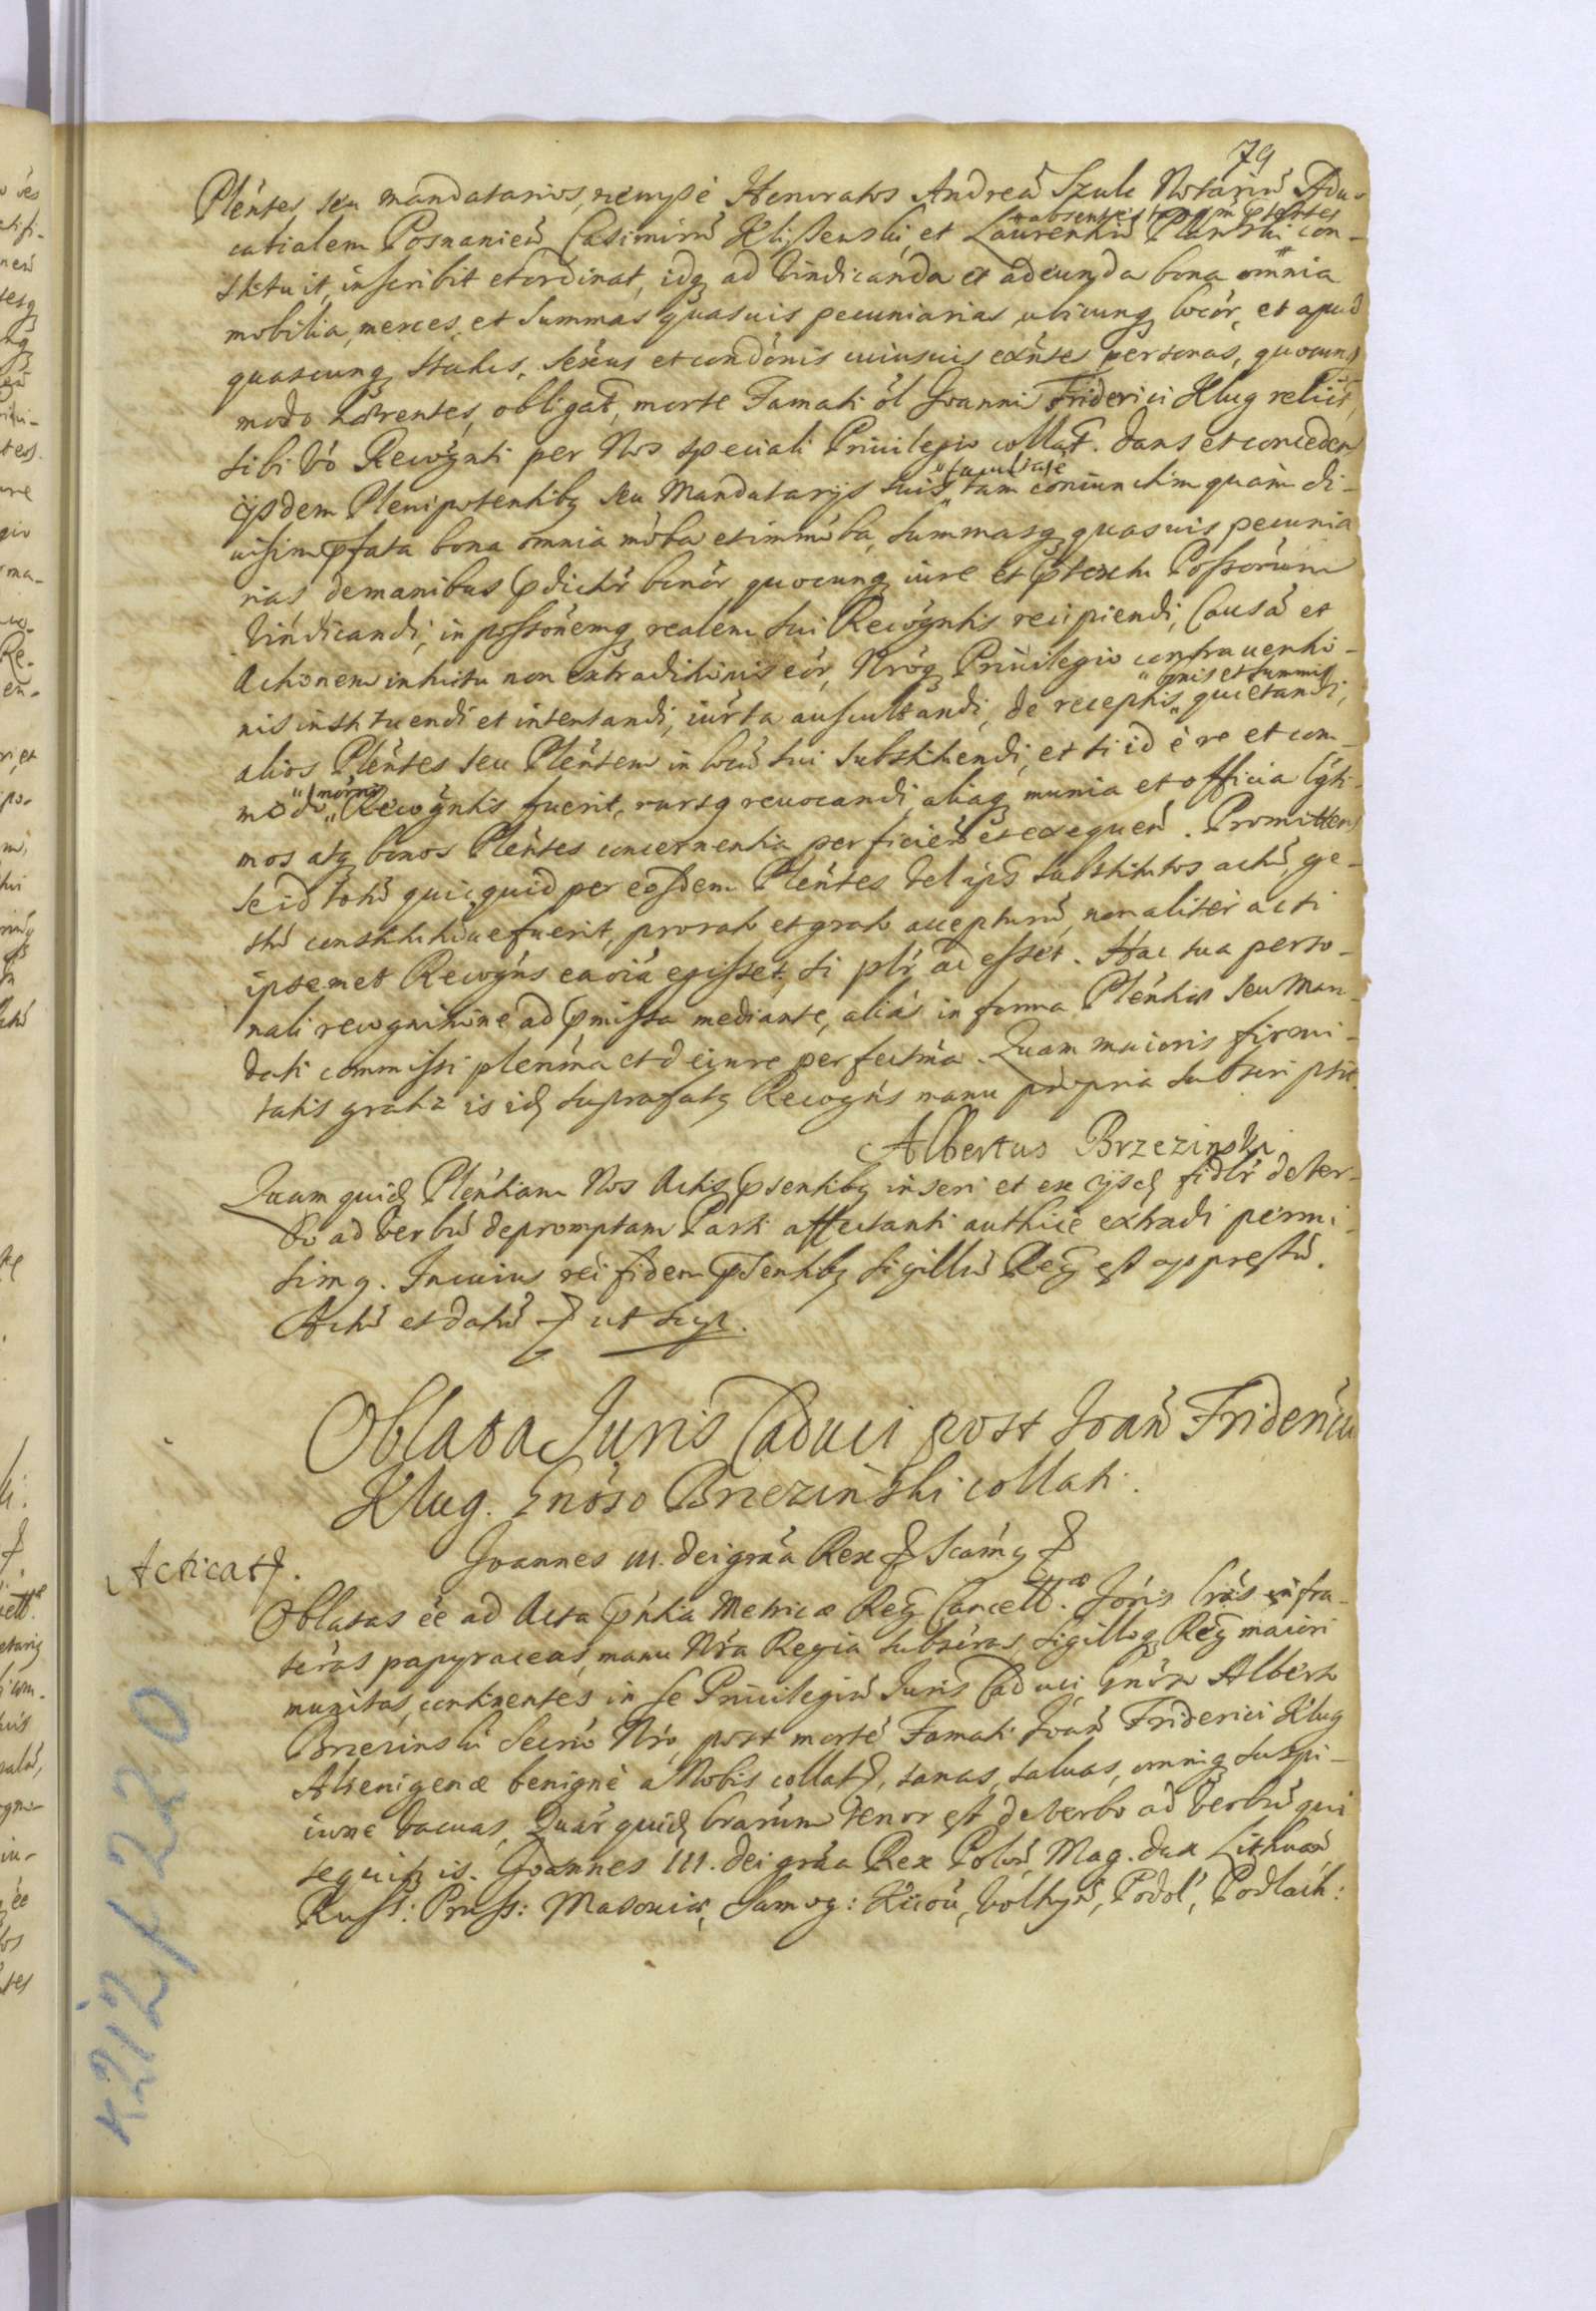 79
Pleñtes seu mandatarios, nempè Honoratos Andreã Szulc Notariũ Advo-
catialem Posnanieñ Casimirũ Klissenski, et Laurentiũ con-
absentes tanq̃m p̃sentes
stituit, inscribit et ordinat, idq, ad vindicanda et adeunda bona omnia
mobilia, merces, et summas quasuis pecuniarias, ubicunq, locor, et apud
quascunq, status, sexus et condõnis cuiusuis exñtes personas, quocunq
modo hærentes, obligat, morte Famati ol Joanni Friderici Klug relict,
sibi vó Recognti per Nos speciali Priuilegio collat. Dans et conceden
ijsdem Plenipotentibq seu Mandatarijs suis, tam coniunctim quàm di-
facultate
uisim p̃fata bona omnia moba et immoba, summasq, quasuis pecunia
rias, de manibus p̃dictor bonor quocunq iure et p̃textu Possorum
vindicandi, in possonemq realem sui Recogntis recipiendi, Causã et
Actionem intuitu non extraditionis eor, Nróq Priuilegio contrauentio-
nis instituendi et intentandi, iurta auscultandi, de receptis quietandi,
bonis et summis
alios Pleñtes seu Pleñtem in locũ sui substituendi, et si id è re et com-
modo Recogntis fuerit, rursq reuocandi, aliaq munia et officia lgti-
mos atq bonos Pleñtes concernentia perficieñ et exequeñ. Promittens
se id totũ quicquid per eosdem Pleñtes vel ap̃s substitutos actũ, ge-
stũ constitutũue fuerit, pro rato et grato accepturũ, non aliter ac si
ipsemet Recogñs ea oia egisset, si plr ad esset. Hac sua perso-
nali recognitione ad p̃missa mediante, aliàs in forma Pleñtiæ seu Man-
dati commissi plenima et de iure perfectma. Quam maioris firmi-
tatis gratia is id, suprafatq Recogñs manu propria subscripsit.
Albertus Brzezinski
Quam quid Pleñtiam Nos Actis p̃sentibq inseri et ex ijsd fidlr de ver-
bo ad verbũ depromptam Parti affectanti authice extradi permi-
simq. In cuius rei fidem p̃sentibq sigillũ Reg est appressũ.
Actũ et datũ ut supr.
Oblata Juris Caduci post Joañ Fridericũ
Klug. Gnóso Brzezinski collati.
Acticat.
Joannes III. Dei grãa Rex Scãmq
Oblatas éé ad Acta p̃ñtia Metricæ Reg Cancellræ. Joris lrás infra-
teras papyraceas, manu Nra Regia subscras, sigilloq Reg maiori
munitas, continentes in se Priuilegiũ Juris Caduci, Gnóso Alberto
Brzezinski Secrio Nro, post mortẽ Famati Joañ Friderici Klug
Alienigenæ benignè à Nobis collat, sanas, saluas, omniq suspi-
cione vacuas, Quar quid lrarum tenor est de verbo ad verbũ qui
sequitr is. Joannes III. Dei grãa Rex Poloñ, Mag. Dux Lithuañ,
Russ: Pruss: Masouiæ, Samog: Kiioũ, Volhyñ, Podol, Podlach:
K212/220